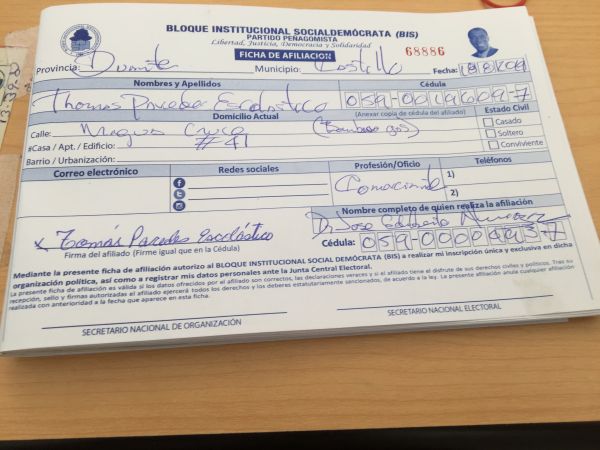 BLOQUE INSTITUCIONAL SOCIALDEMÓCRATA (BIS)
PARTIDO PEÑAGOMISTA
Libertad, Justicia, Democracia y Solidaridad
FICHA DE AFILIACIÓN
68886
Provincia: Duarte Municipio: Castillo Fecha:
Nombres y Apellidos Cédula
Thomas Paredes Escolastico
(Anexar copia de cédula del afiliado)
Domicilio Actual Estado Civil
Calle:
Casado
#Casa / Apt. / Edificio: #41
Soltero
Barrio / Urbanización:
Conviviente
Correo electrónico Redes sociales Profesión/Oficio Teléfonos
1)
Comerciante
2)
Nombre completo de quien realiza la afiliación
x Tomás Paredes Escolástico
Dr Jose
Firma del afiliado (Firme igual que en la Cédula)
Cédula: 059-0000495-7
Mediante la presente ficha de afiliación autorizo al BLOQUE INSTITUCIONAL SOCIAL DEMÓCRATA (BIS) a realizar mi inscripción única y exclusiva en dicha
organización política, así como a registrar mis datos personales ante la Junta Central Electoral.
La presente ficha de afiliación es válida si los datos ofrecidos por el afiliado son correctos, las declaraciones veraces y si el afiliado tiene el disfrute de sus derechos civiles y políticos. Tras su
recepción, sello y firmas autorizadas el afiliado ejercerá todos los derechos y los deberes estatutariamente sancionados, de acuerdo a la ley. La presente afiliación anula cualquier afiliación
realizada con anterioridad a la fecha que aparece en esta ficha.
SECRETARIO NACIONAL DE ORGANIZACIÓN SECRETARIO NACIONAL ELECTORAL